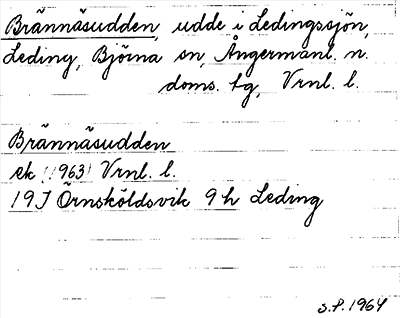 Brännäsudden, udde i Ledingssjön,
Leding, Björna sn, Ångermanl. n.
doms. tg, Vrnl. l.
Brännäsudden
ek (1963) Vrnl. l.
19J Örnsköldsvik 9h Leding
S.P. 1964